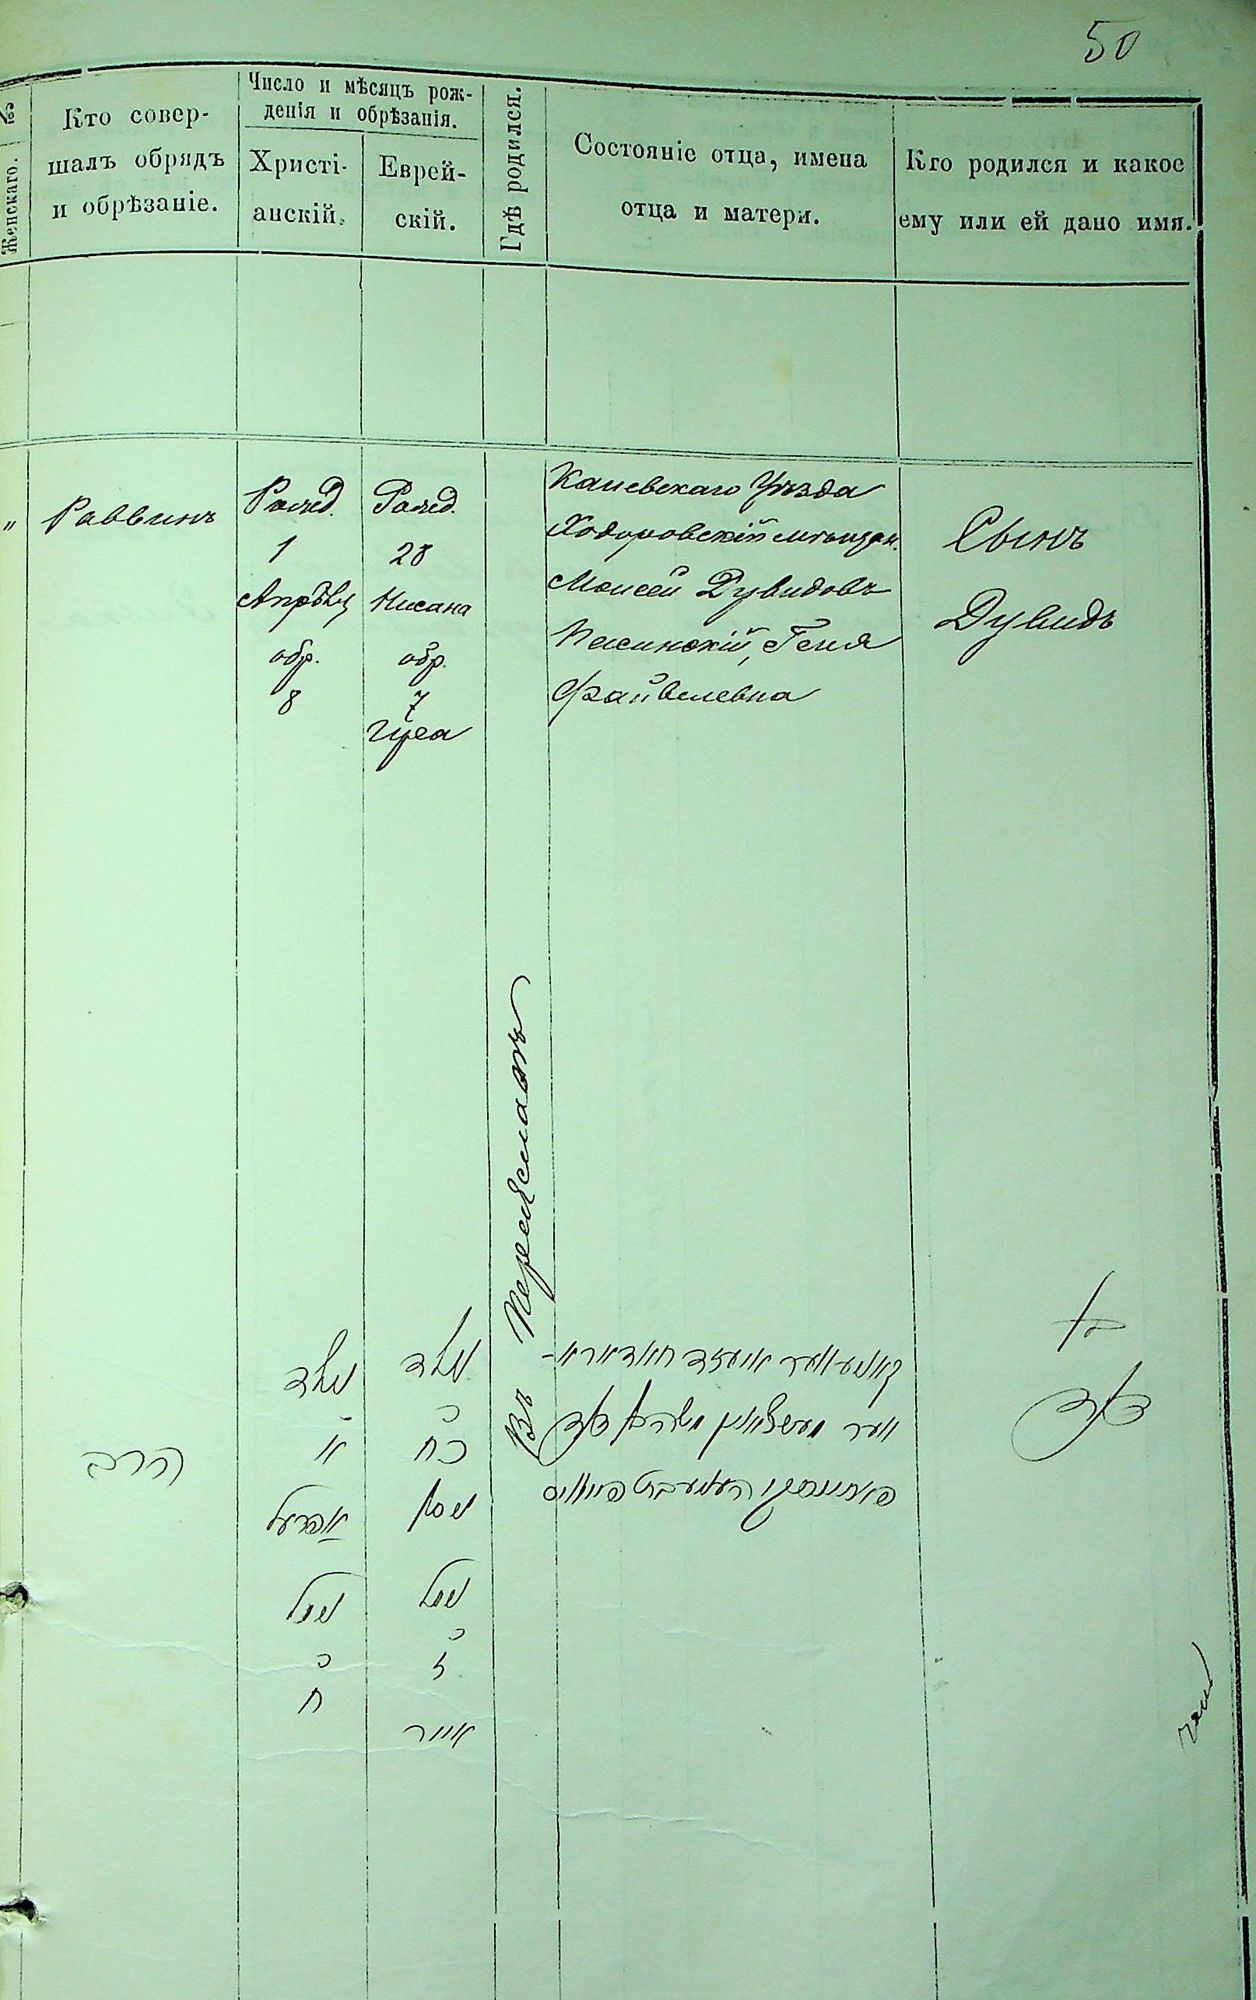 50
№
Женскаго.
Кто совер-
шалъ обрядъ
и обрѣзаніе.
Число и мѣсяцъ рож-
денія и обрѣзанія.
Христі-
анскій.
Еврей-
скій.
Гдѣ родился.
Состояніе отца, имена
отца и матери.
Кто родился и какое
ему или ей дано имя.
"
Раввинъ
Рожд.
1
Апрѣля
обр.
8
Рожд.
28
Нисана
обр.
7
Іяра
Въ Переяславѣ
Каневскаго Уѣзда
Ходоровскій мѣщан.
Моисей Дувидовъ
Песинскій, Геня
Файвелевна
Сынъ
Дувидъ
הרב
נולד
א
אפריל
נימול
ח
נולד
כח
ניסן
נימול
ז
אייר
בן
דוד